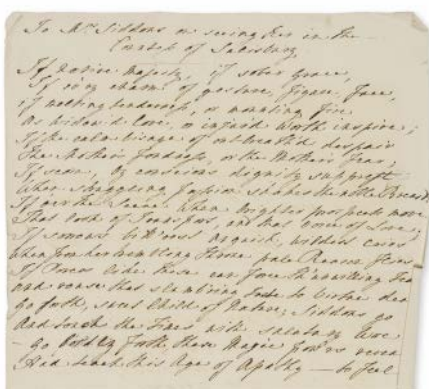 To Mrs. Siddons on seeing her in the
Countess of Salisbury
If native Majesty, if sober Grace,
If ev'ry charm of gesture, figure, face,
if melting tenderness, or mantling fire
As widow'd Love, or injur'd Worth inspire;
If the calm visage of outbreath'd despair
The Mother's fondness, or the Mother's Fear;
If scorn, by conscious dignity supprest
When struggling Passion shakes the noble Breast
If o'er the Scene when brighter prospects move
that look of Transport, and that voice of Love;
If Anguish, wilder
When from her trembling Throne pale Reason flies
If Pow'rs like these can force th' unwilling Tear
and rouse that slumb'ring to Virtue dear
Go forth, sweet Child of Nature; Siddons go
And touch the Times with salutary Woe
- go forth, these Magic Pow'rs reveal
And teach this Age of Apathy - to feel